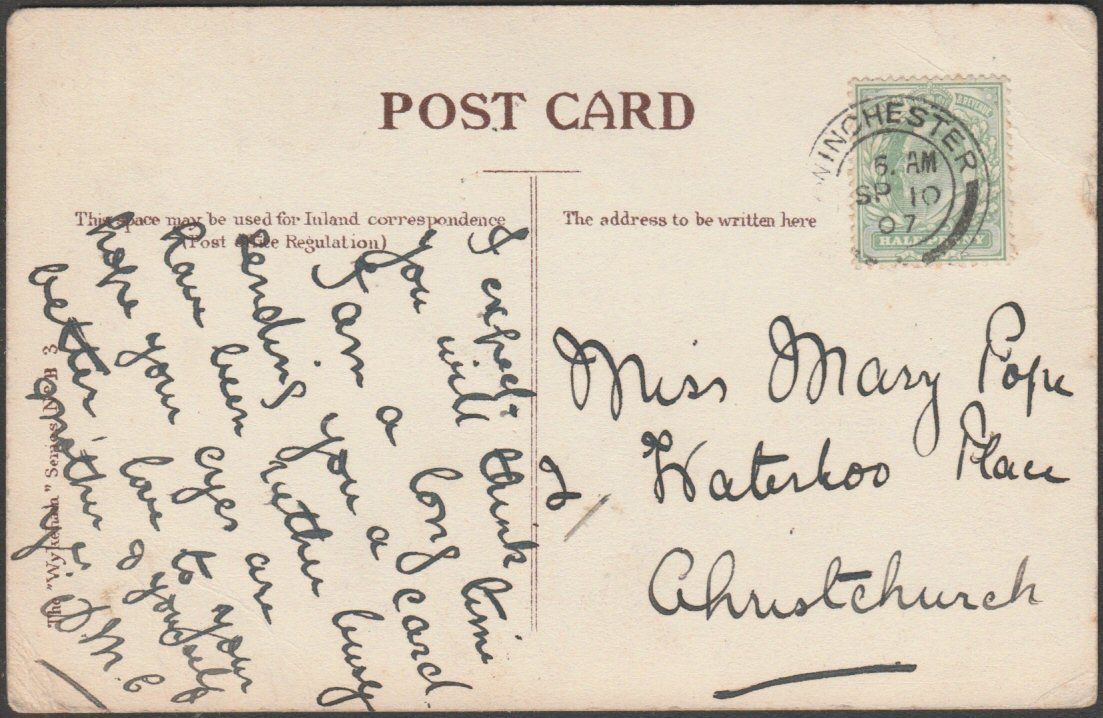 POST CARD
This space may be used for Inland correspondence
(Post Office Regulation)
The address to be written here
WINCHESTER
6. AM
SP 10
07
& REVENUE
HALFPENNY
I expect
you will think
I am a long time
sending you a card
have been rather busy
hope your eyes are
better love to your
mother & yourself
J. M. C
2
Miss Mary Pope
Waterloo Place
Christchurch
The "Wykeham" Series
3